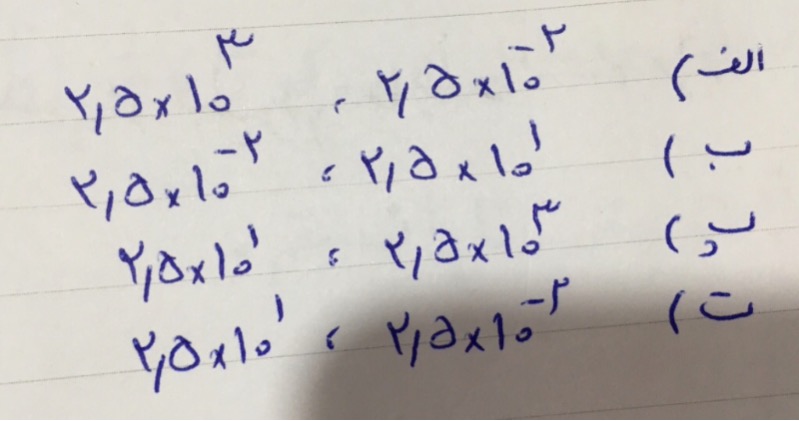 الف) ۲٫۵×۱۰^-۲ ، ۲٫۵×۱۰^۳
ب) ۲٫۵×۱۰^۱ ، ۲٫۵×۱۰^-۲
پ) ۲٫۵×۱۰^۳ ، ۲٫۵×۱۰^۱
ت) ۲٫۵×۱۰^-۲ ، ۲٫۵×۱۰^۱